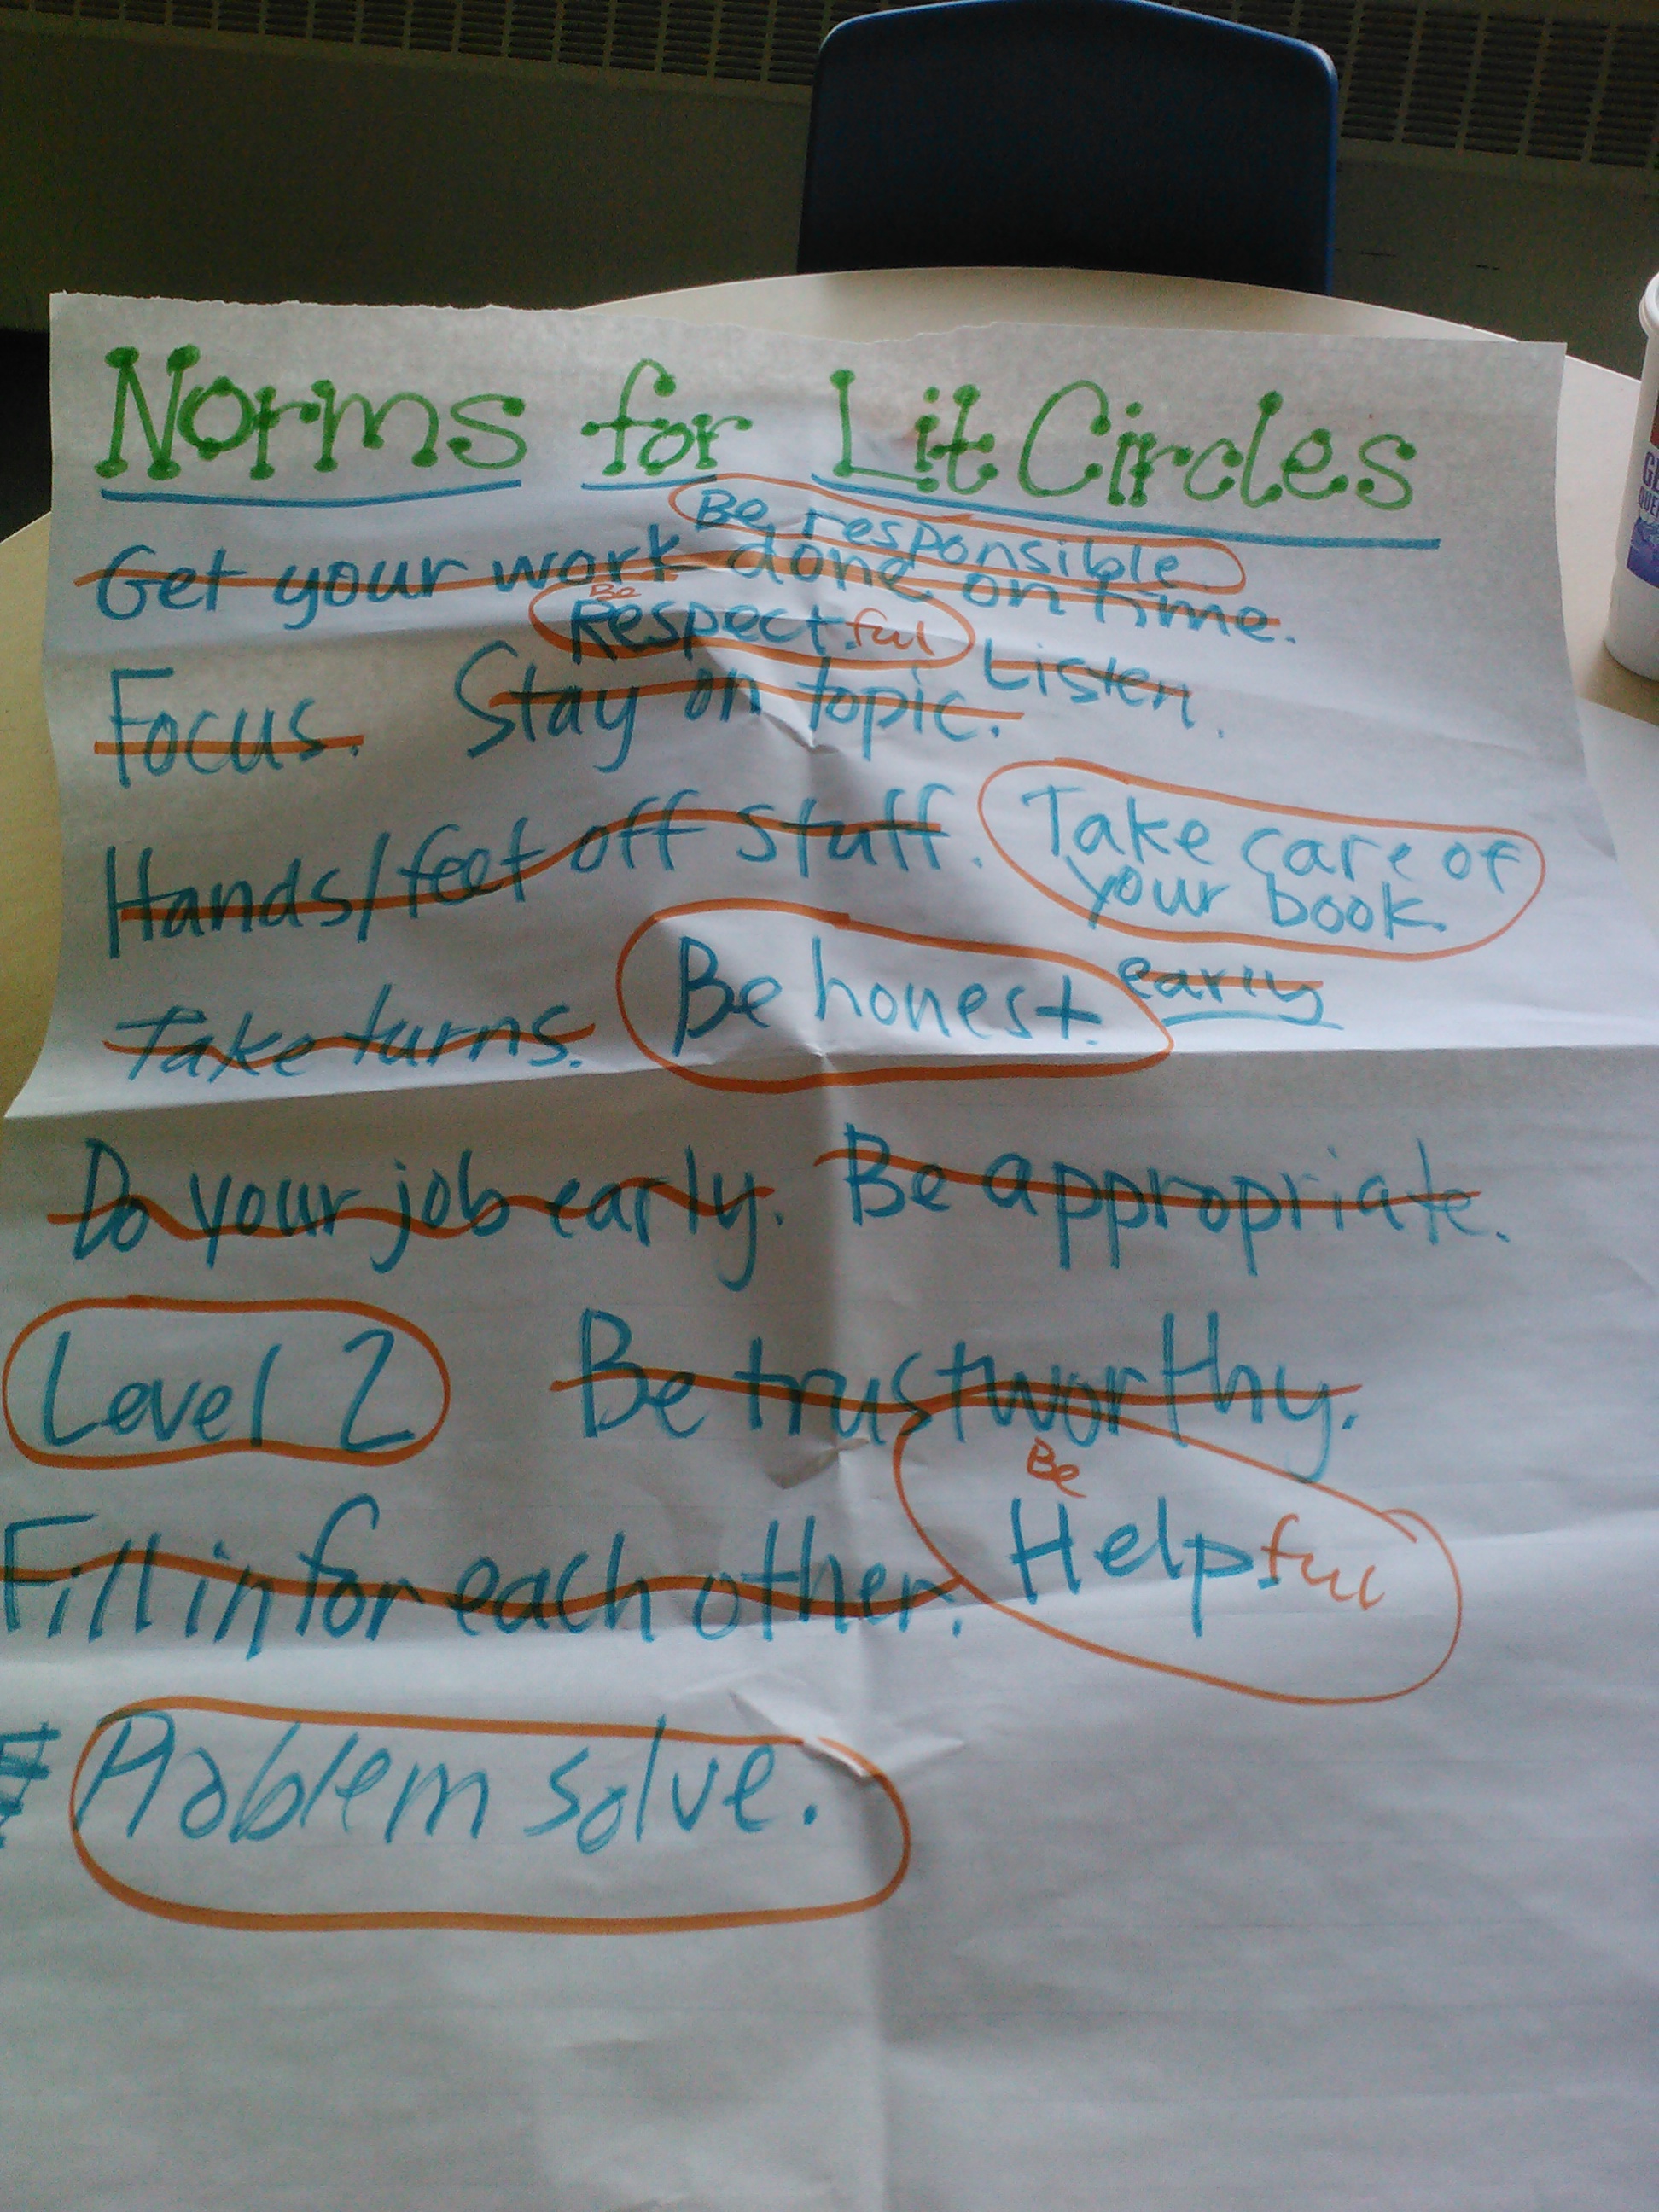 Norms for Lit Circles
Be responsible.
Get your work done on time.
Be
Respect.ful
Focus. Stay on topic. Listen.
Hands/feet off stuff. Take care of
your book.
Take turns. Be honest. early
Do your job early. Be appropriate.
Level 2 Be trustworthy.
Be
Fill in for each other. Helpful
Problem solve.